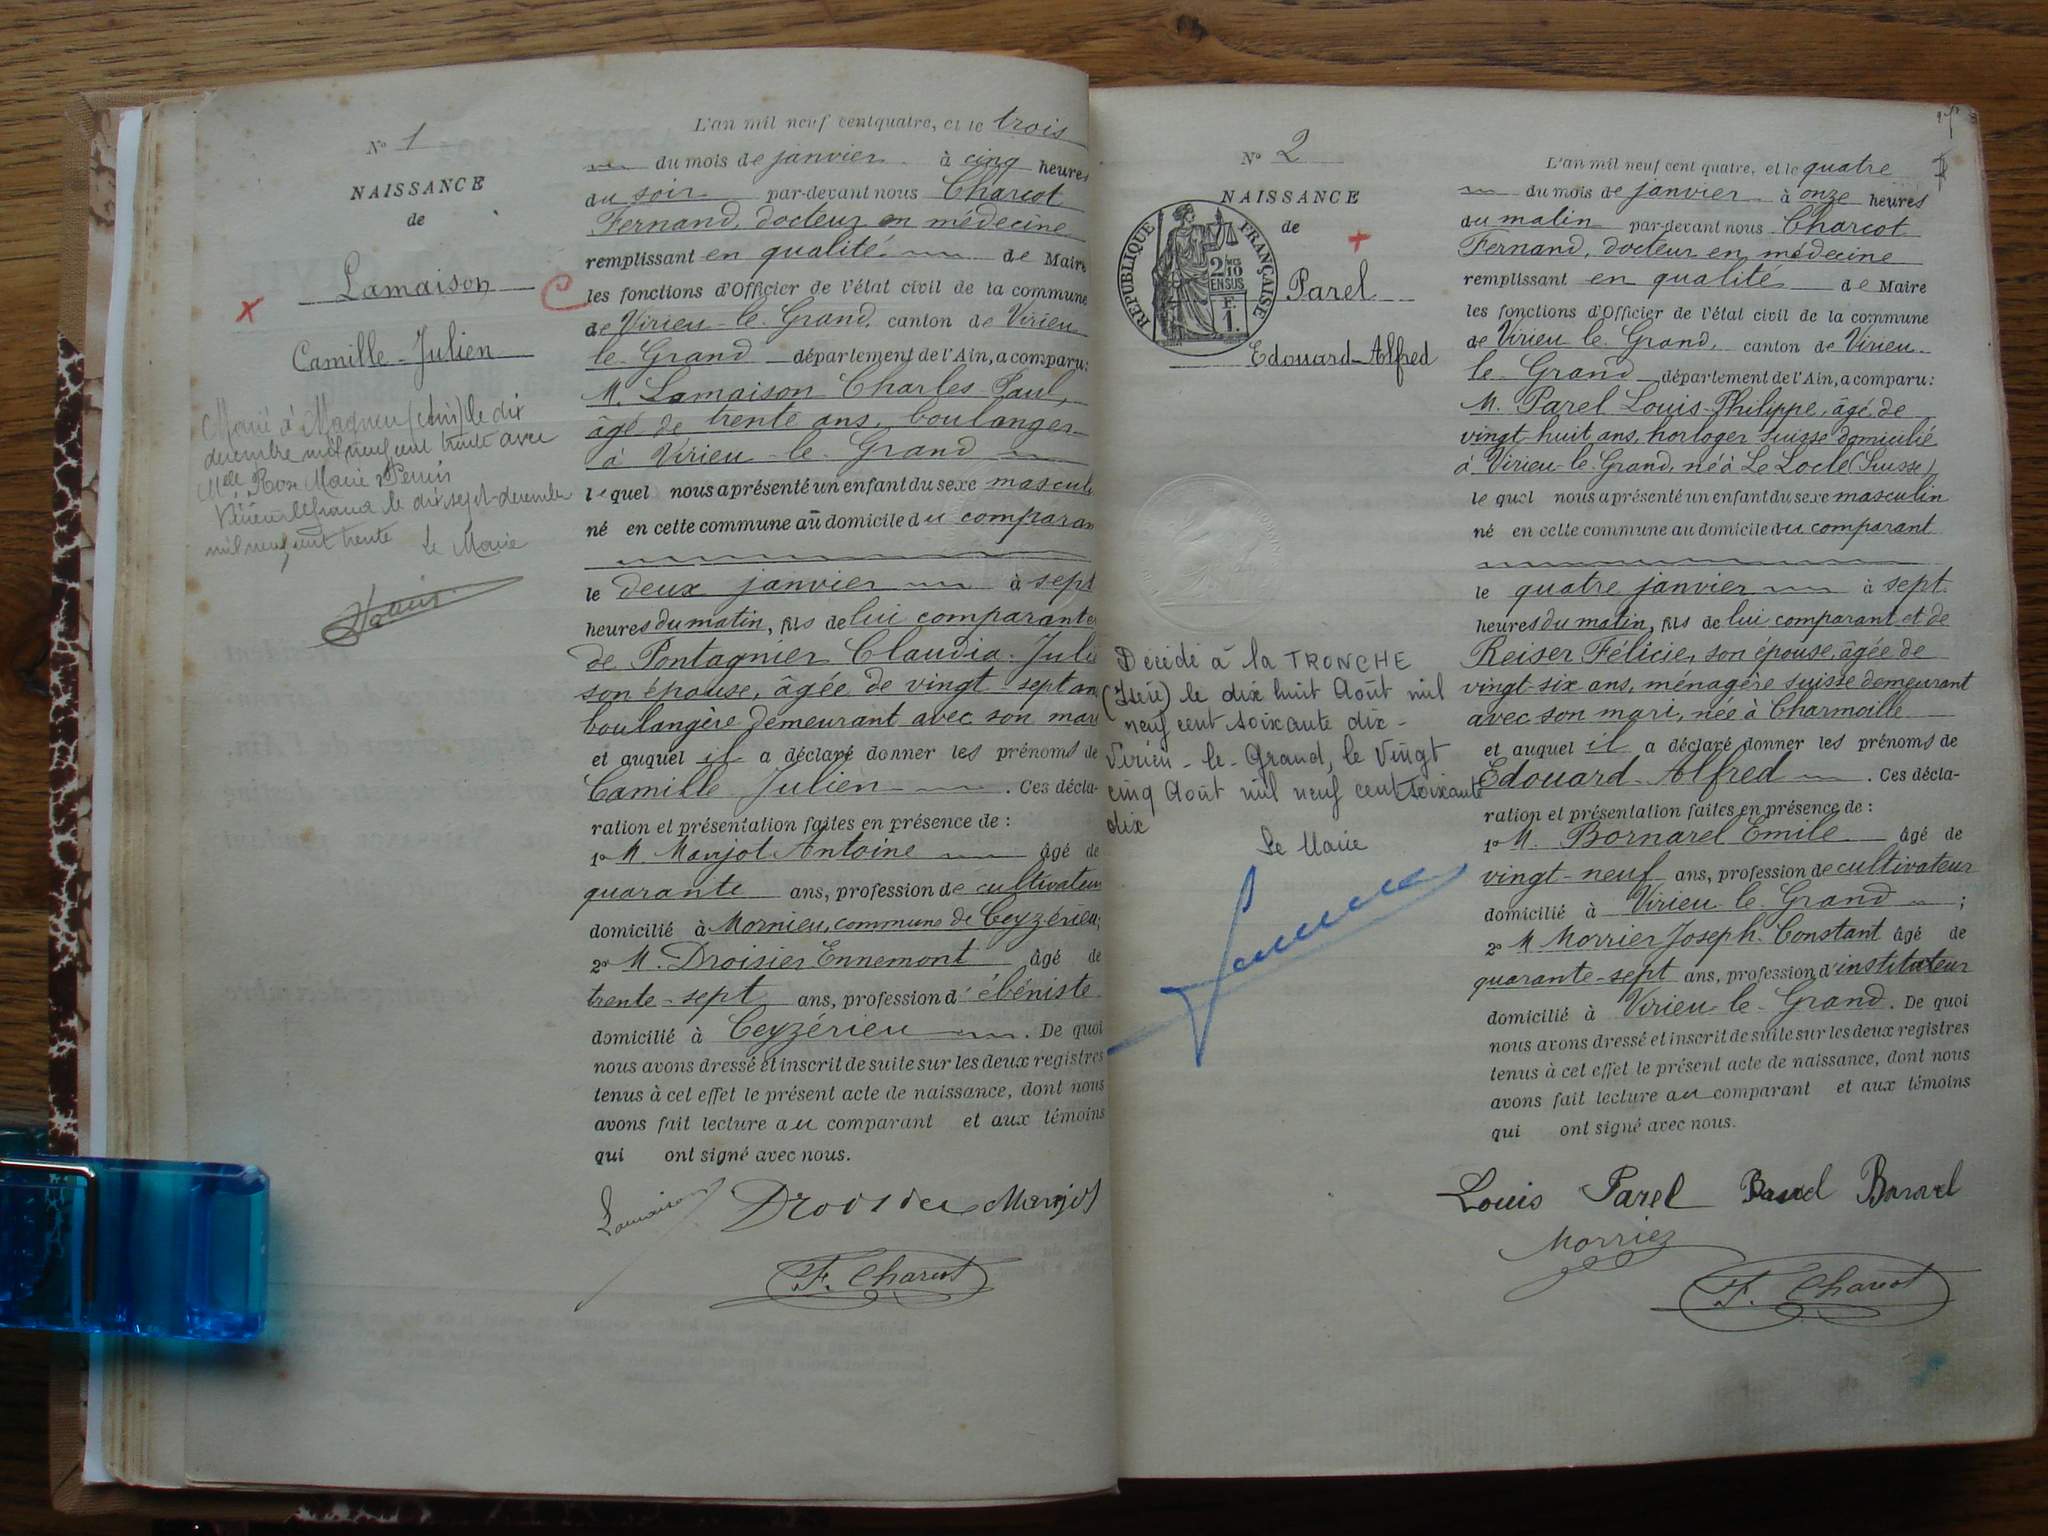 N° 1
NAISSANCE
de
Lamaison
Camille-Julien
Marié à Magnieu (Ain) le dix
décembre mil neuf cent trente avec
Melle Rose Marie Perrin
Virieu le Grand le dix sept décembre
mil neuf cent trente Le Maire
L'an mil neuf cent quatre, et le trois
du mois de janvier à cinq heures
du soir par-devant nous Charcot
Fernand, docteur en médecine
remplissant en qualité de Maire
les fonctions d'Officier de l'état civil de la commune
de Virieu-le-Grand, canton de Virieu
le-Grand département de l'Ain, a comparu:
M. Lamaison Charles Paul,
âgé de trente ans, boulanger
à Virieu-le-Grand
lequel nous a présenté un enfant du sexe mascul
né en cette commune au domicile du comparan
le deux janvier à sept
heures du matin, fils de lui comparant et
de Pontagnier Claudia-Juli
son épouse, âgée de vingt-sept an
boulangère demeurant avec son mari
et auquel il a déclaré donner les prénoms de
Camille Julien. Ces décla-
ration et présentation faites en présence de :
1° M. Manjot Antoine âgé de
quarante ans, profession de cultivateur
domicilié à Mornieu, commune de Ceyzérieu;
2° M. Droisier Ennemont âgé de
trente-sept ans, profession d'ébéniste
domicilié à Ceyzérieu. De quoi
nous avons dressé et inscrit de suite sur les deux registres
tenus à cet effet le présent acte de naissance, dont nous
avons fait lecture au comparant et aux témoins
qui ont signé avec nous.
Lamaison Droisier Manjot
F. Charcot
N° 2
NAISSANCE
de
RÉPUBLIQUE FRANÇAISE
2/10 EN SUS
F. 1.
Parel
Edouard-Alfred
Décédé à la TRONCHE
(Isère) le dix huit Août mil
neuf cent soixante dix-
Virieu-le-Grand, le vingt
cinq Août mil neuf cent soixante
dix
Le Maire
L'an mil neuf cent quatre, et le quatre
du mois de janvier à onze heures
du matin par-devant nous Charcot
Fernand, docteur en médecine
remplissant en qualité de Maire
les fonctions d'Officier de l'état civil de la commune
de Virieu le Grand, canton de Virieu-
le-Grand département de l'Ain, a comparu:
M. Parel Louis-Philippe, âgé de
vingt-huit ans, horloger suisse domicilié
à Virieu-le-Grand, né à Le Locle (Suisse)
lequel nous a présenté un enfant du sexe masculin
né en cette commune au domicile du comparant
le quatre janvier à sept
heures du matin, fils de lui comparant et de
Reiser Félicie, son épouse, âgée de
vingt-six ans, ménagère suisse demeurant
avec son mari, née à Charmoille
et auquel il a déclaré donner les prénoms de
Edouard-Alfred. Ces décla-
ration et présentation faites en présence de :
1° M. Bornarel Emile âgé de
vingt-neuf ans, profession de cultivateur
domicilié à Virieu-le-Grand ;
2° M Morrier Joseph-Constant âgé de
quarante-sept ans, profession d'instituteur
domicilié à Virieu-le-Grand. De quoi
nous avons dressé et inscrit de suite sur les deux registres
tenus à cet effet le présent acte de naissance, dont nous
avons fait lecture au comparant et aux témoins
qui ont signé avec nous.
Louis Parel
Morrier
F. Charcot